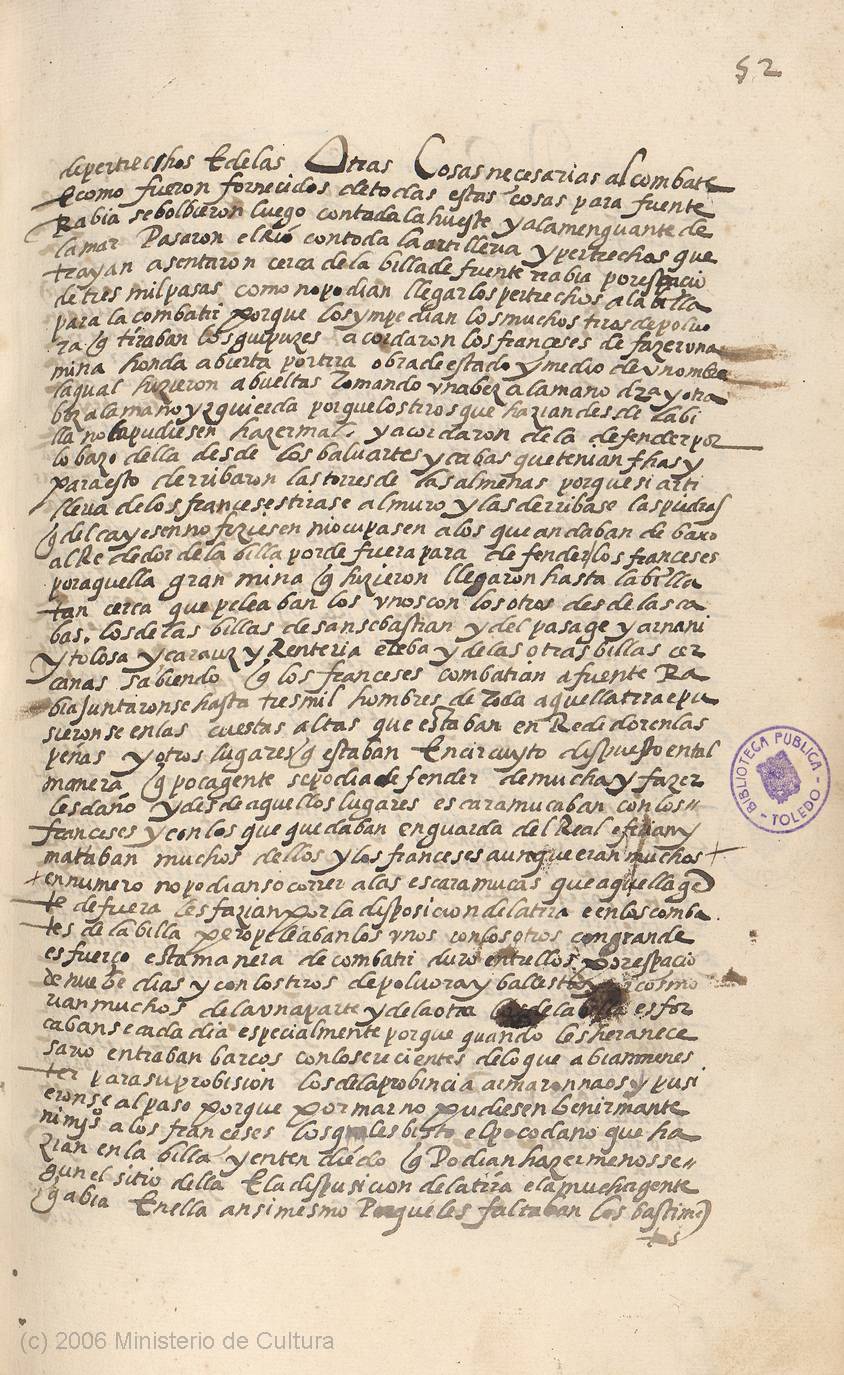 52
depertrechos E delas Otras Cosas necesarias al combate
E como fueron fornecidos de todas estas cosas para fuente
Rabia se bolbieron luego con toda la hueste y ala menguante de
la mar Pasaron el Rio con toda la artilleria y pertrechos que
trayan asentaron cerca de la billa de fuente rrabia por espacio
de tres mil pasas como no podian llegar los pertrechos a la billa
para la combatir porque los ympedian los muchos tiros de polvo
ra q tiraban los guipuzes acordaron los franceses de fazer una
mina honda abierta por tira obra de estado y medio de vn ombre
la qual hizieron a bueltas Tomando vna bez a la mano dra y otra
bez a la mano yzquierda porque los tiros que hazian desde la bi
lla no la pudiesen hazer mal. y acordaron de la defender por
lo baxo della desde los baluartes y cabas que tenian fhas y
para esto derribaron las torres de las almenas porque si arti
lleria de los franceses tirase al muro y las derribase las piedras
q del cayesen no firiesen ni ocupasen a los que andaban de baxo
al Rededor de la billa por de fuera para defender los franceses
por aquella gran mina q hizieron llegaron hasta la billa
tan cerca que pelea ban los vnos con los otros desde las ca
bas. los de las billas de san sebastian y del pasage y arnani
y tolosa y carauz y Renteria e deba y de las otras billas cer
canas sabiendo q los franceses combatian a fuente Ra
bia Juntaronse hasta tres mil hombres de Toda aquella tira e pu
sieronse en las cuestas altas que estaban en Rededor en las
peñas y otros lugares q estaban En circuyto dispuesto en tal
manera q poca gente se podia defender de mucha y fazer
les daño y desde aquellos lugares escaramucaban con los
franceses y con los que quedaban en guarda del Real e firian y
mataban muchos dellos y los franceses aunque eran muchos
en numero no podian socorrer a las escaramucas que aquella gē
te de fuera les fazian por la disposicion de la tira e en los comba
tes de la billa pero peleaban los vnos con los otros con grande
esfuerço esta manera de combatir duro entrellos por espacio
de nuebe dias y con los tiros de polvora y ballesteria como
rian muchos de la vna parte y de la otra los de la billa esfor
cabanse cada dia especialmente porque quando les hera nece
sario entraban barcos con los crecientes de lo que abian menes
ter para su probision los de la probincia armaron naos y pusi
eronse al paso porque por mar no pudiesen benir mante
nimjos a los franceses los quales bisto el poco dano que ha
zian en la billa y entendiēdo q Podian hazer menos se
gun el sitio della E la dispusicion de la tira e la mucha gente
q abia En ella ansimesmo Porque les faltaban los bastimē
tos
BIBLIOTECA PUBLICA - TOLEDO -
(c) 2006 Ministerio de Cultura